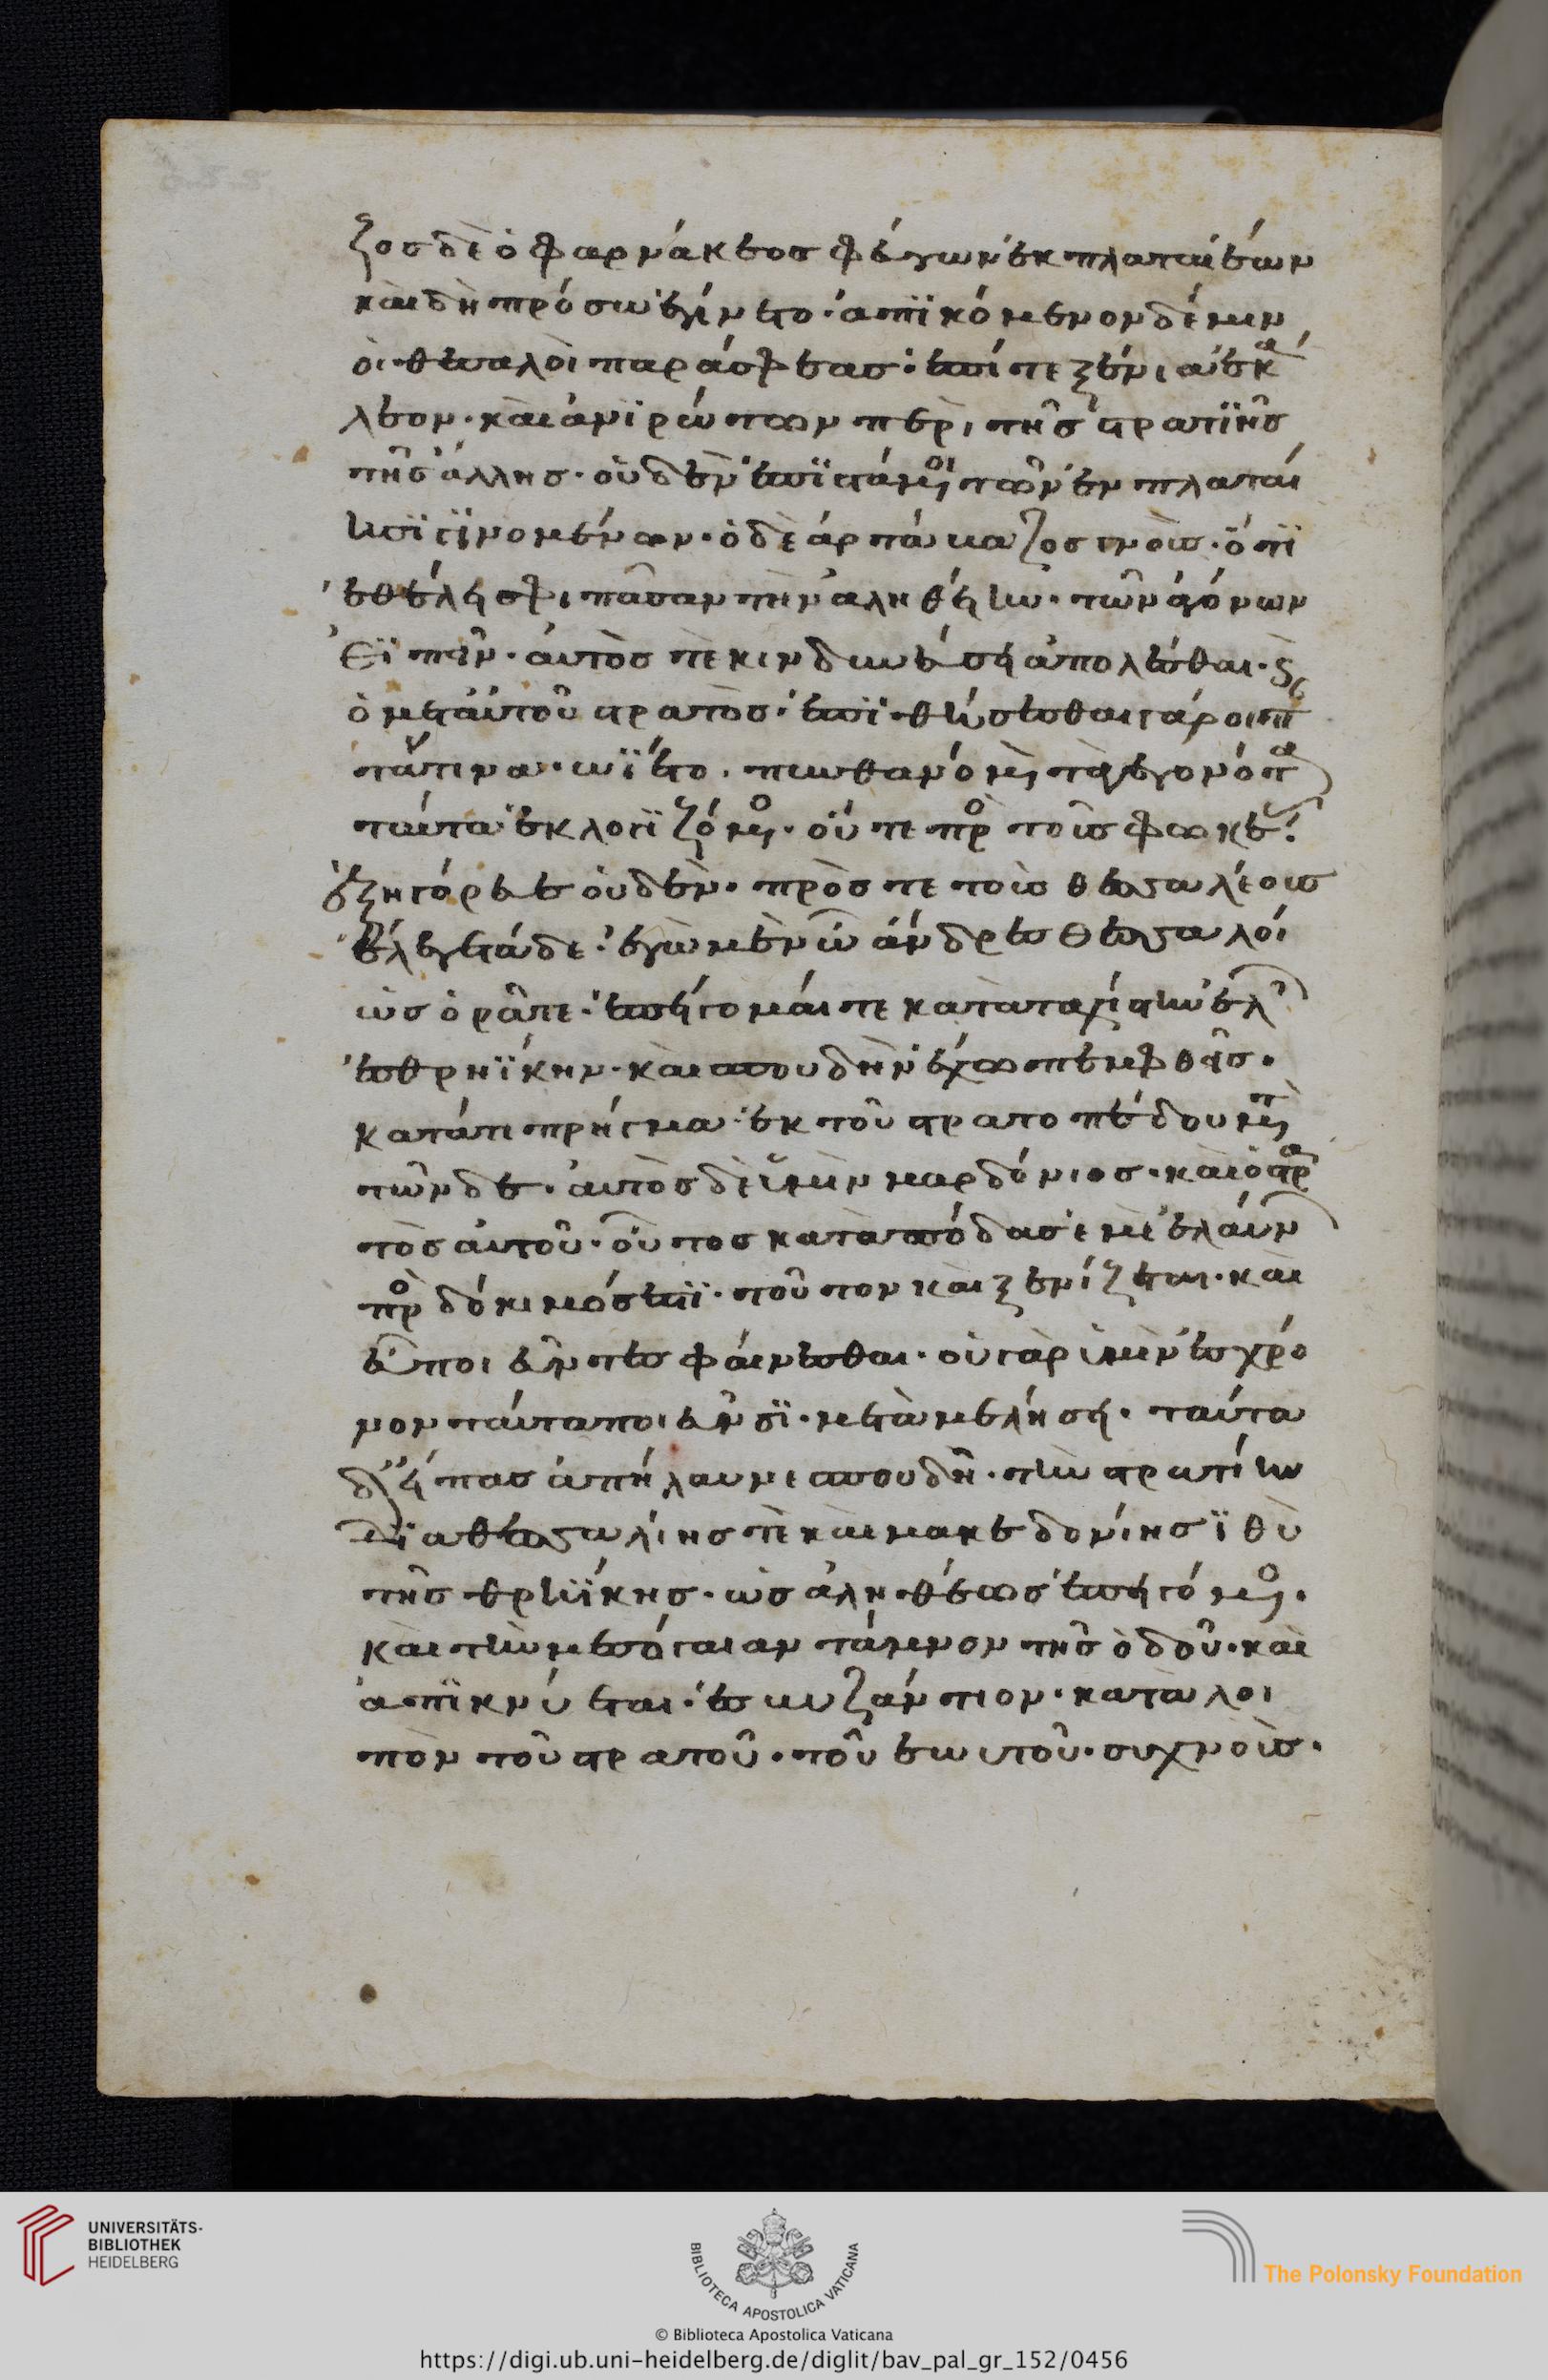 ζος δὲ ὁ φαρνάκεος φεύγων ἐκ πλαταιέων
καὶ δὴ πρόσω ἐγίνετο· ἀπικόμενον δέ μιν
οἱ θεσαλοὶ παρὰ σφέας· ἐπί τε ξείνια ἐκά
λεον· καὶ ἀνιρώτων περὶ τῆς στρατιῆς
τῆς ἄλλης· οὐδὲν ἐπιστάμενοι τῶν ἐν πλαται
ῆσι γινομένων· ὁ δὲ ἀρτάβαζος γνοὺς· ὅτι
ἐθέλει σφι πᾶσαν τὴν ἀληθείην· τῶν ἀγώνων
εἰπεῖν· αὐτός τε κινδυνεύσει ἀπολέσθαι· καὶ
ὁ μετ' αὐτοῦ στρατὸς· ἐπιθήσεσθαι γάρ οἱ π
πάντινα· ὠίετο· πυνθανόμενον τὰ γεγονότα
ταῦτα ἐκλογιζόμενος· οὔτε πρὸς τοὺς φωκέας
ἐξηγόρευε οὐδὲν· πρός τε τοὺς θεσσαλέους
ἔλεγε τάδε· ἐγὼ μὲν ὦ ἄνδρες θεσσαλοί
ὡς ὁρᾶτε· ἐπείγομαί τε κατὰ ταχίστην ἐλῶν
ἐς θρηίκην· καὶ σπουδὴν ἔχω πεμφθεὶς·
κατά τι πρῆγμα ἐκ τοῦ στρατοπέδου μετὰ
τῶνδε· αὐτὸς δὲ ὑμῖν μαρδόνιος· καὶ ὁ στρα
τὸς αὐτοῦ· οὗτος κατὰ πόδας ἐμὲ ἐλαύνων
προσδόκιμός ἐστι· τοῦτον καὶ ξεινίζετε· καὶ
εὖ ποιεῦντες φαίνεσθαι· οὐ γὰρ ὑμῖν ἐς χρό
νον ταῦτα ποιεῦσι· μεταμελήσει· ταῦτα
δὲ εἴπας ἀπήλαυνε σπουδῇ· τὴν στρατιὴν
διὰ θεσσαλίης τε καὶ μακεδονίης ἰθὺ
τῆς θρηίκης· ὡς ἀληθέως ἐπειγόμενος·
καὶ τὴν μεσόγαιαν τάμνων τῆς ὁδοῦ· καὶ
ἀπικνέεται· ἐς βυζάντιον· καταλι
πὼν τοῦ στρατοῦ· τοῦ ἑωυτοῦ· συχνοὺς·
UNIVERSITÄTS-
BIBLIOTHEK
HEIDELBERG
BIBLIOTECA APOSTOLICA VATICANA
The Polonsky Foundation
© Biblioteca Apostolica Vaticana
https://digi.ub.uni-heidelberg.de/diglit/bav_pal_gr_152/0456